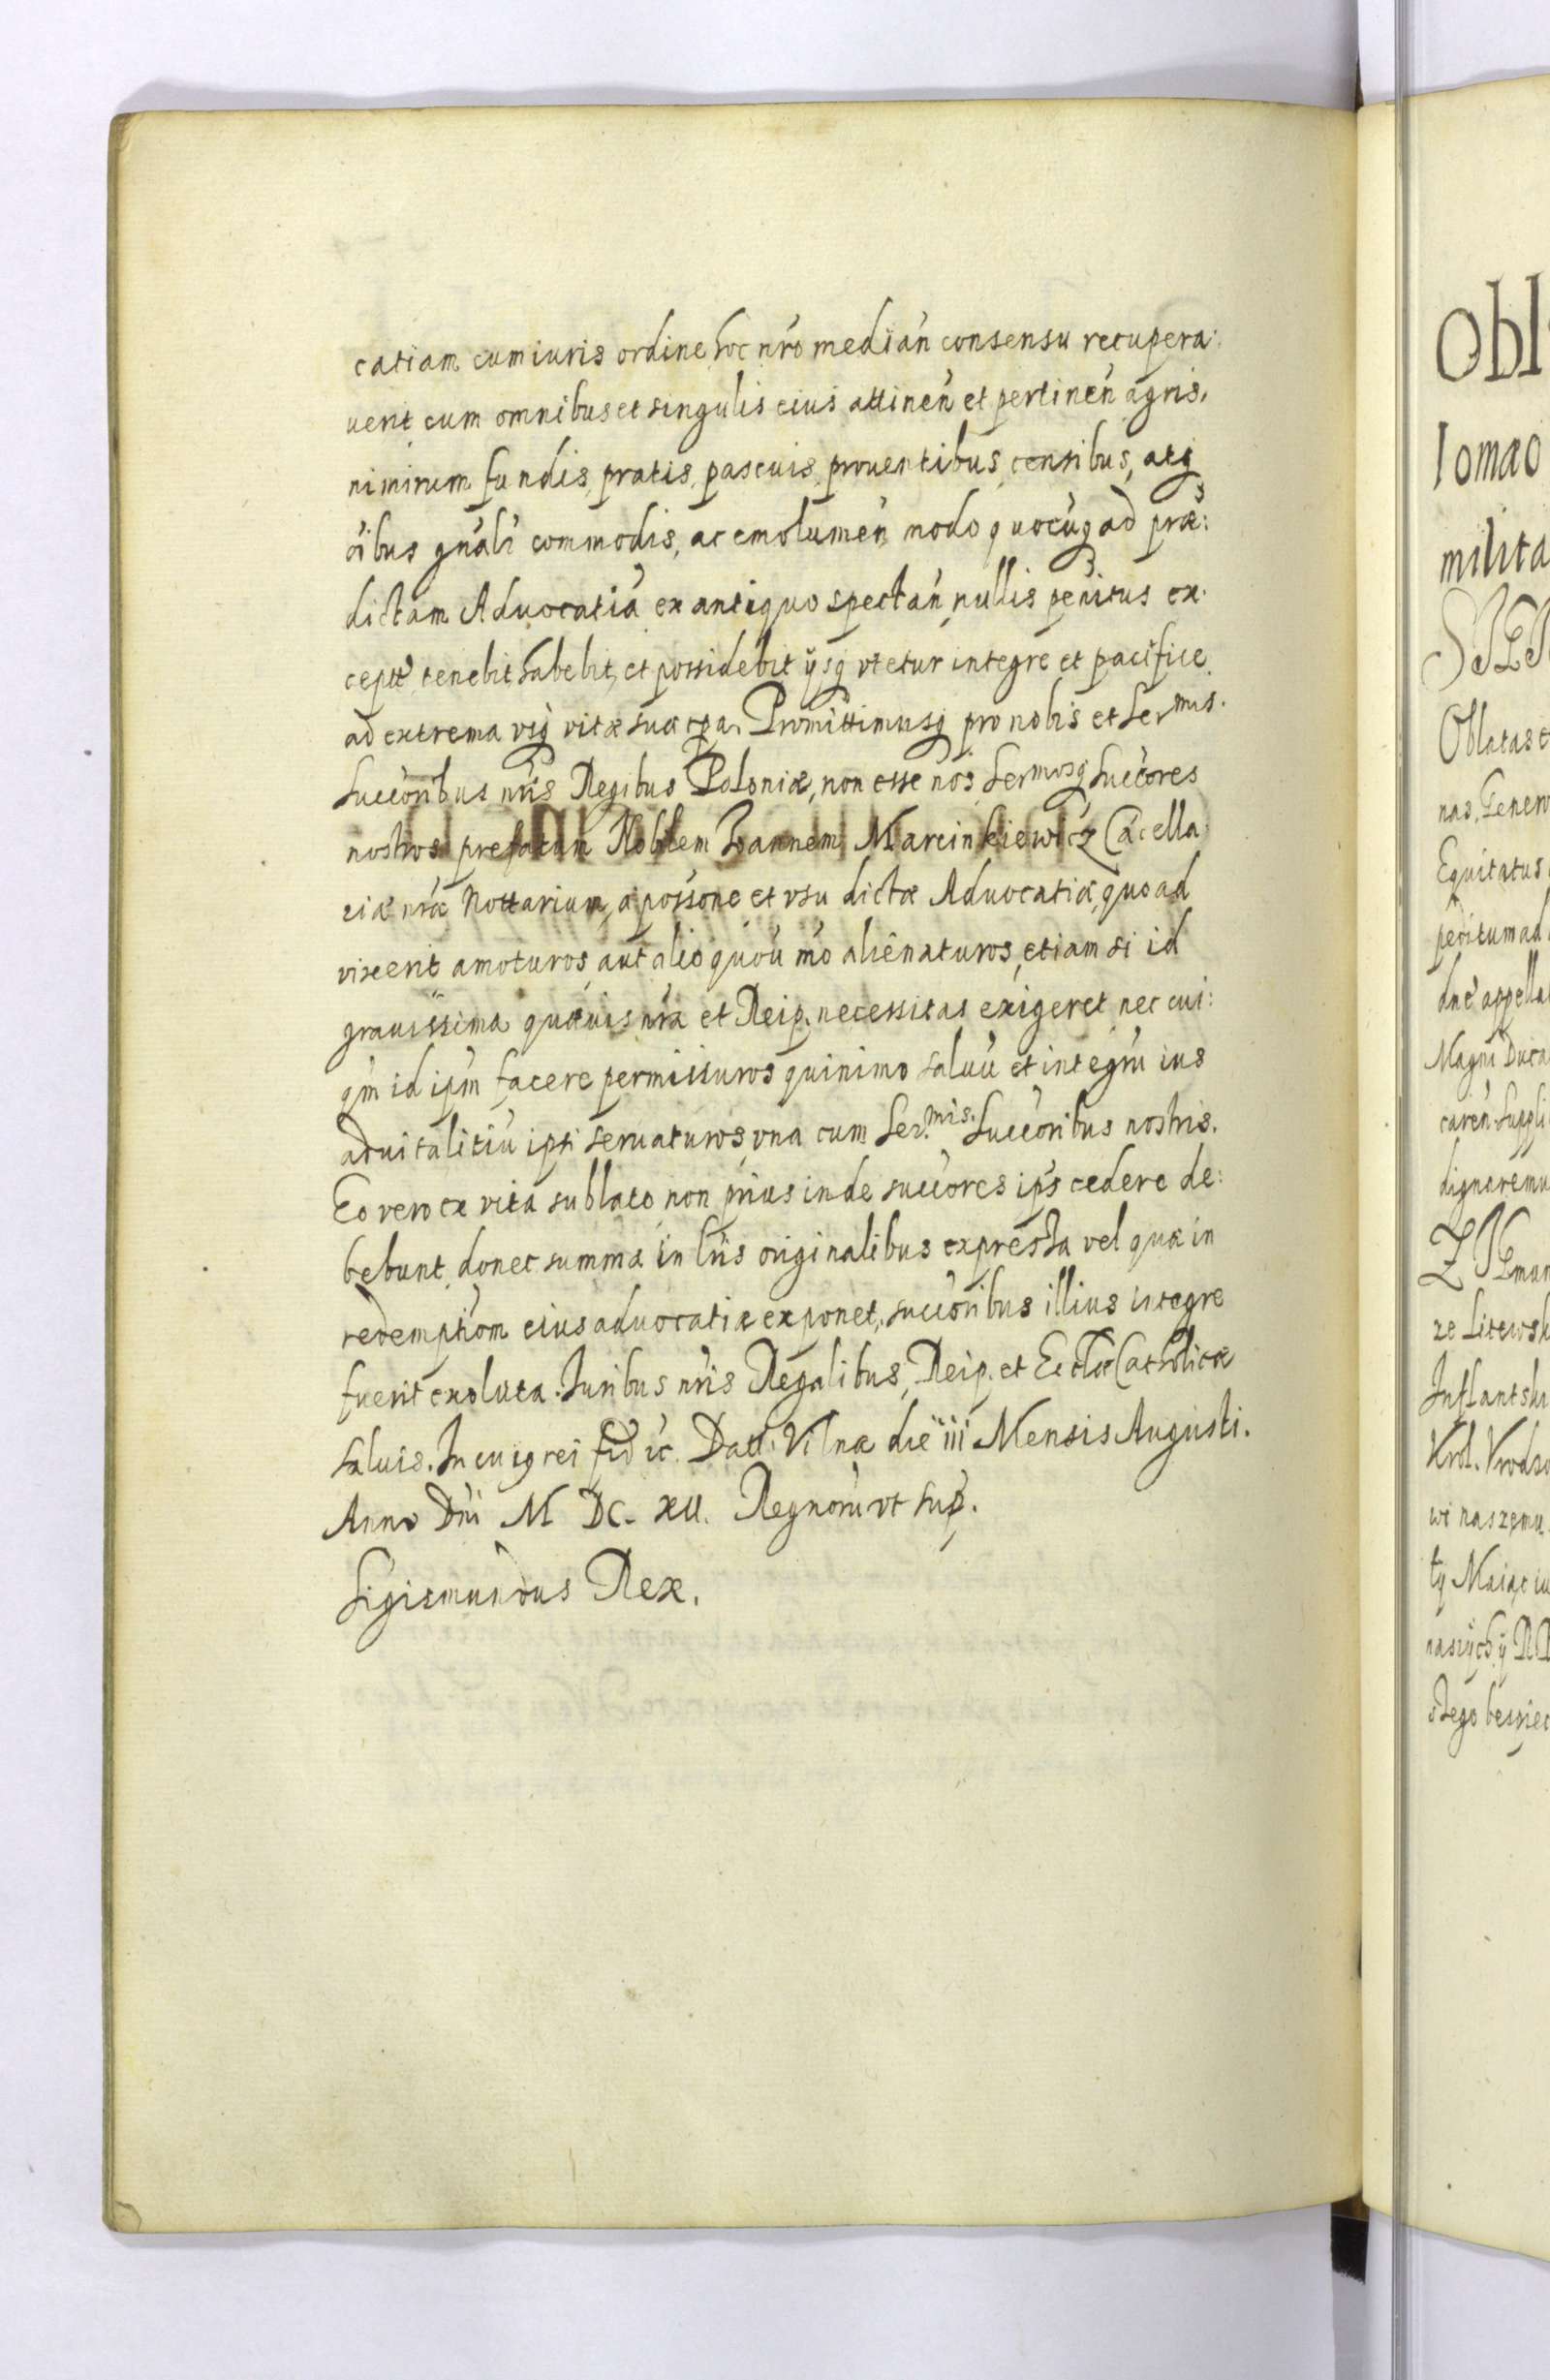 catiam cum iuris ordine hoc nr̃o median̄ consensu recupera:
uerit cum omnibus et singulis eius attinen̄ et pertinen̄ agris,
nimirum fundis, pratis, pascuis, prouentibus, censibus, atq3
oĩbus gnãli commodis, ac emolumen̄ modo quocũq3 ad præ:
dictam Aduocatiã ex antiquo spectan̄, nullis penitus ex:
ceptĩ, tenebit, habebit, et possidebit ijsq3 vtetur integre et pacifice
ad extrema vsq3 vitæ suæ tp̃a. Promittimusq3 pro nobis et Ser^mis.
Succõribus nr̃is Regibus Poloniæ, non esse nos, Ser^mosq3 Succõres
nostros prefatum Nobilem Ioannem Marcinkiewicz Cãcella:
riæ nr̃æ Nottarium, a possõne et vsu dictæ Aduocatiæ, quoad
vixerit amoturos, aut alio quouĩ mõ alienaturos, etiam si id
grauissima quæuis nr̃a et Reip. necessitas exigeret, nec cui:
qm̃ id ipm̃ facere permissuros quinimo saluũ et integrũ ius
aduitalitiũ ipsi seruaturos, vna cum Ser.^mis. Succõribus nostris.
Eo vero ex vita sublato non prius inde succõres ip̃s cedere de:
bebunt, donec summa in lr̃is originalibus expressa vel quæ in
redemptiõm eius aduocatiæ exponet, succõribus illius integre
fuerit exoluta. Iuribus nr̃is Regalibus, Reip. et Eccl̃æ Catholicæ
saluis. In cuiq rei fid ĩc. Datt: Vilnæ die iii Mensis Augusti.
Anno Dñi M DC. XII. Regnorũ vt sup.
Sigismundus Rex.
Obl
Iomao
milita
Oblatas e
nas, Genero
Equitatus
peritum ad
dnẽ appella
Magni Duca
caren̄. Suppli
dignaremu
ZIgmun
ze Litewsk
Inflantski
Krol. Vrodzo
wi naszemu
ty Maiąc
naszych y R
stego bespiec